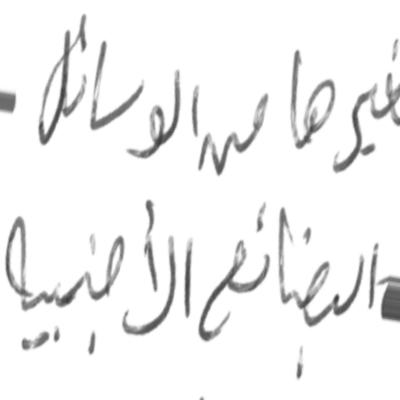 غيرها من الوسائل
البضائع الأجنبية